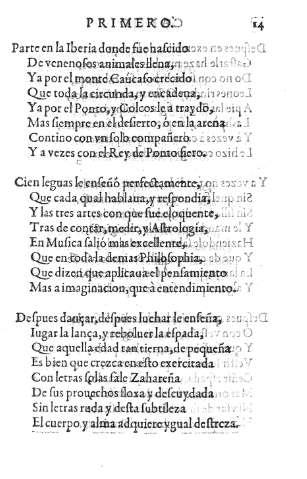 PRIMERO. 14
Parte en la Iberia donde fue nascido
De venenosos animales llena,
Ya por el monte Caucaso crecido
Que toda la circunda, y encadena,
Ya por el Ponto, y Colcos le a traydo,
Mas siempre en el desierto, ò en la arena
Contino con vn solo compañero
Y a vezes con el Rey de Ponto fiero.
Cien leguas le enseñò perfectamente,
Que cada qual hablaua, y respondia,
Y las tres artes con que fue eloquente,
Tras de contar, medir, y Astrologia,
En Musica saliò mas excellente,
Que en toda la demas Philosophia,
Que dizen que aplicaua el pensamiento
Mas a imaginacion, que à entendimiento.
Despues dançar, despues luchar le enseña,
Iugar la lança, y reboluer la espada,
Que aquella edad tan tierna, de pequeña
Es bien que crezca en esto exercitada
Con letras solas sale Zahareña
De sus prouechos floxa y descuydada
Sin letras ruda y desta subtileza
El cuerpo y alma adquiere ygual destreza.